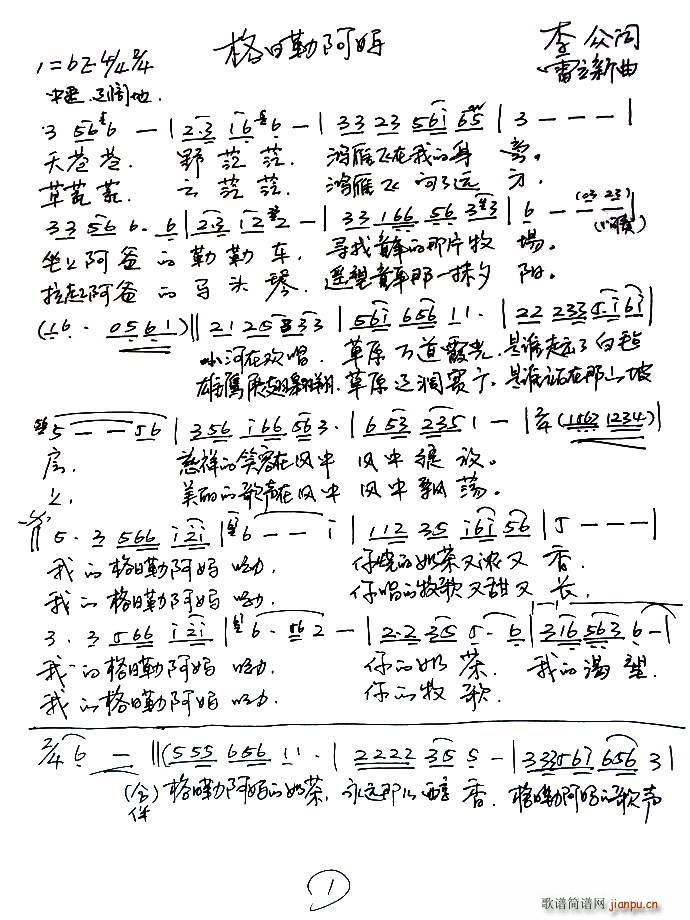 格日勒阿妈
1=bE 4/4 2/4
李众 词
雷立新 曲
中速 辽阔地
3 56 6 — | 2·3 1 6 6 — | 33 23 561 65 | 3 — — — |
天苍苍. 野茫茫. 鸿雁飞在我的身旁。
草茫茫. 云茫茫. 鸿雁飞向了远方.
33 56 6· 6 | 2·3 12 2 — | 33 166 56 3 3 | 6 — — (03 23) |
坐上阿爸的勒勒车, 寻找童年的那片牧場。
拉起阿爸的马头琴. 遥望童年那一抹夕阳。
(16 · 0561) || 2125 333 | 561 656 11· | 22 2335·163 |
小河在欢唱. 草原万道霞光. 是谁走出了白毡
雄鹰展翅翱翔. 草原辽阔宽广. 是谁站在那山坡
5 — — 56 | 356 166 563· | 6 53 2351 — | 2/4 (1563 1234) |
房. 慈祥的笑容在风中 风中绽放。
上. 美丽的歌声在风中 风中飘荡。
5· 3 566 121 | 6 — — 1 | 112 35 161 56 | 5 — — — |
我的格日勒阿妈 呦. 你烧的奶茶又浓又香.
我的格日勒阿妈 呦. 你唱的牧歌又甜又长.
3· 3 566 121 | 6· 56 2 — | 2·2 35 5· 6 | 316 563 6 — |
我的格日勒阿妈 呦. 你的奶茶. 我的渴望.
我的格日勒阿妈 呦. 你的牧歌.
2/4 6 — || (555 656 11· | 2222 35 5 — | 333567 656 3 |
(合伴) 格日勒阿妈的奶茶. 永远那么醇香. 格日勒阿妈的歌声
1
歌谱简谱网
jianpu.cn